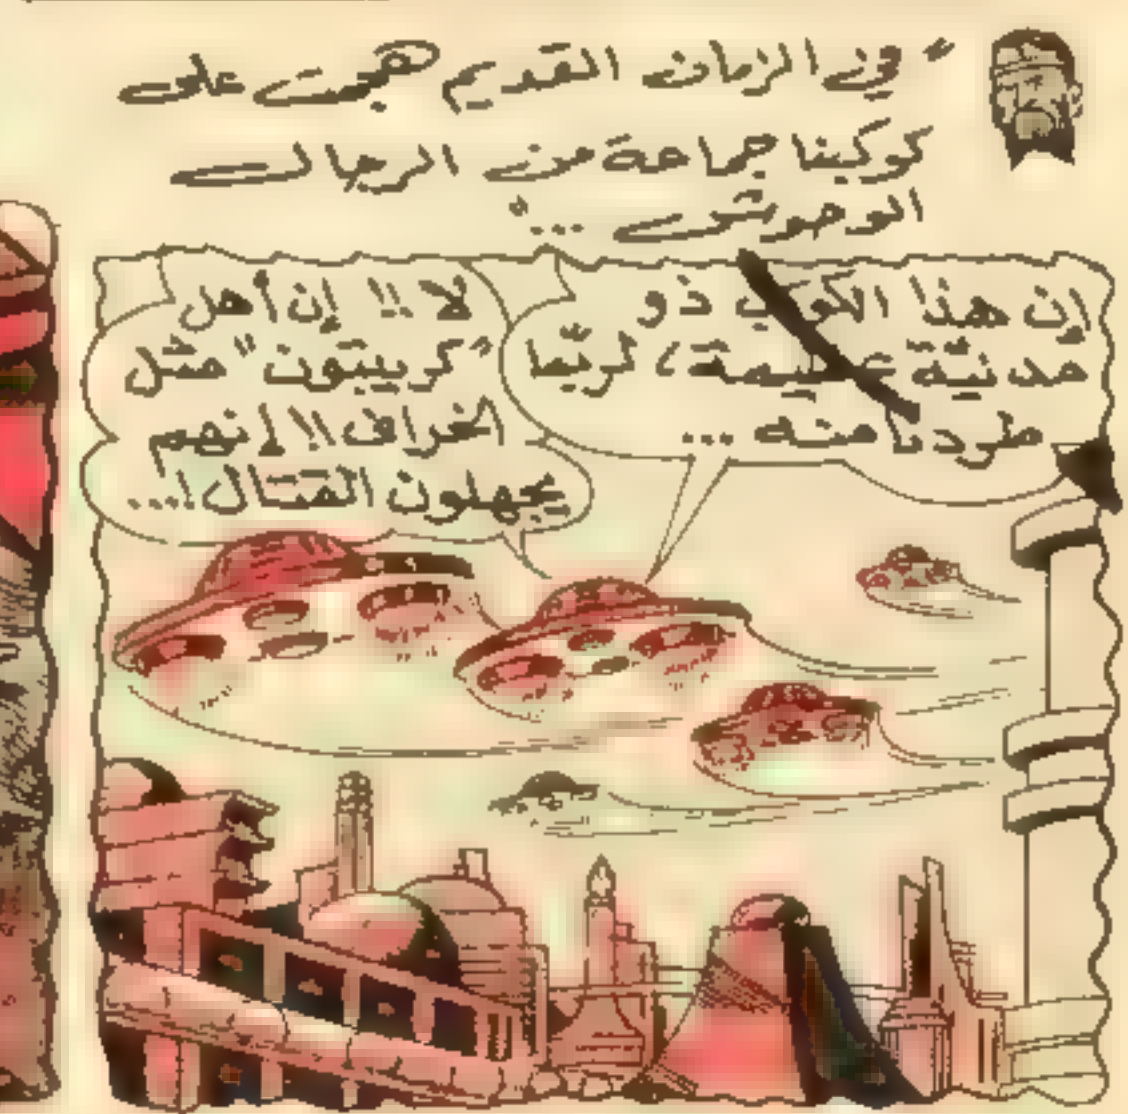 "في الزمان القديم هجمت على
كوكبنا جماعة من الرجال
الوحوش ..."
إن هذا الكوكب ذو
مدنيّة عظيمة، لربّما
طردنا منه ...
لا!! إن أهل
"كريبتون" مثل
الخراف!! إنهم
يجهلون القتال!...